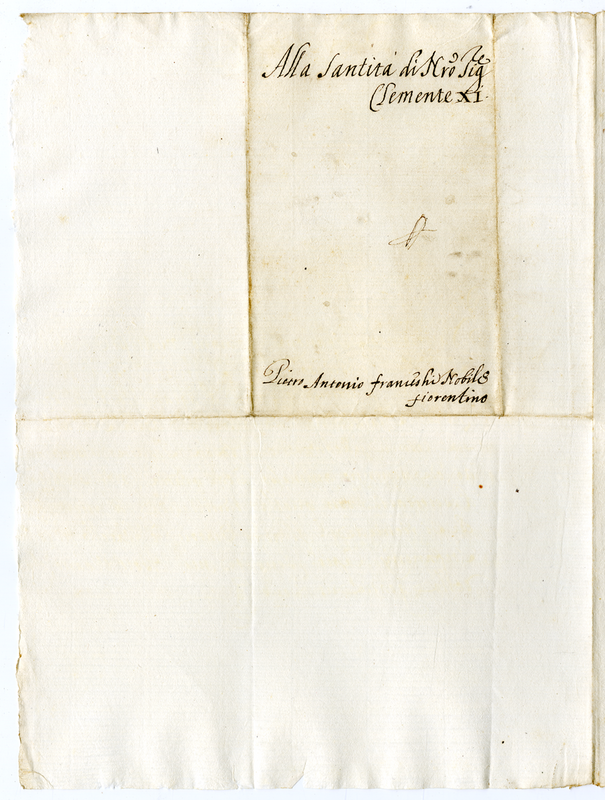 Alla Santità di Nrõ Sig.re
Clemente XI.
Pietro Antonio franceschi Nobile
fiorentino